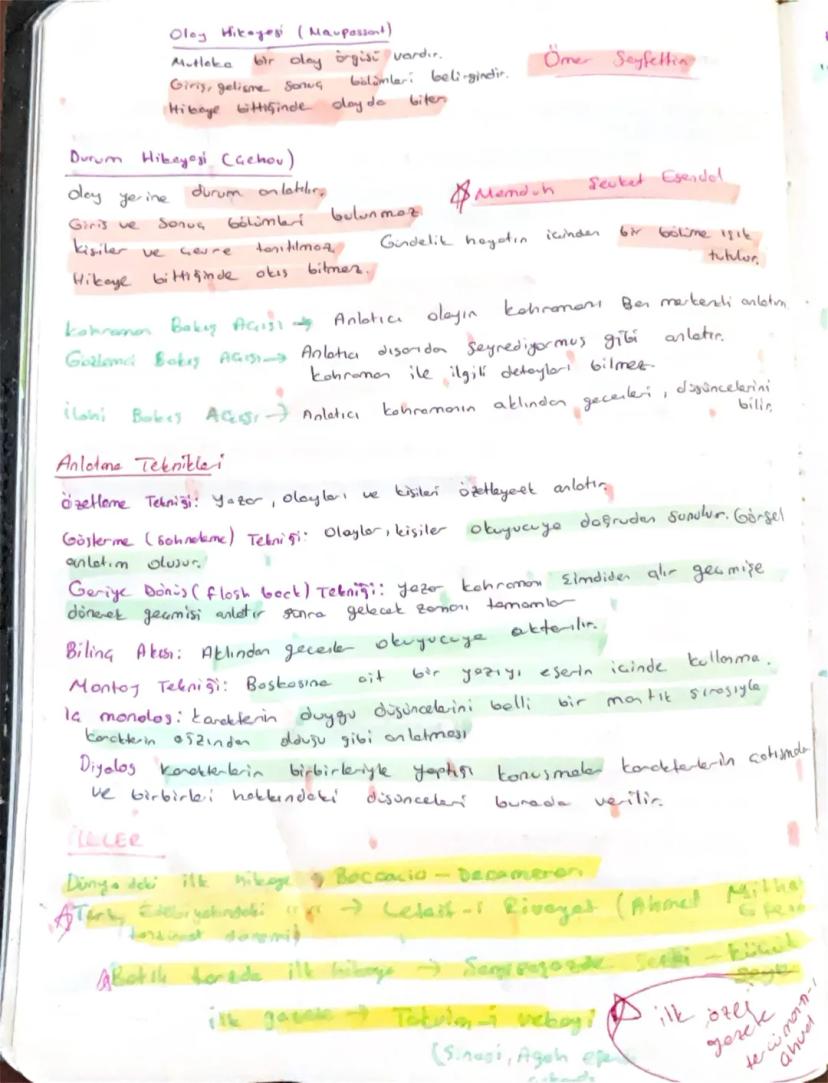 Olay Hikayesi (Maupassant)
Mutlaka bir olay örgüsü vardır.
Ömer Seyfettin
Giriş, gelişme sonuç bölümleri belirgindir.
Hikaye bittiğinde olay da biter
Durum Hikayesi (Çehov)
olay yerine durum anlatılır.
Memduh Şevket Esendal
Giriş ve Sonuç bölümleri bulunmaz
kişiler ve çevre tanıtılmaz
Gündelik hayatın içinden bir bölüme ışık tutulur.
Hikaye bittiğinde akış bitmez.
kahraman Bakış Açısı → Anlatıcı olayın kahramanı Ben merkezli anlatım
Gözlemci Bakış Açısı → Anlatıcı dışarıdan seyrediyormuş gibi anlatır.
kahraman ile ilgili detayları bilmez.
ilahi Bakış Açısı → Anlatıcı kahramanın aklından geçenleri, düşüncelerini
bilir
Anlatma Teknikleri
Özetleme Tekniği: Yazar, olayları ve kişileri özetleyerek anlatır.
Gösterme (sahneleme) Tekniği: Olaylar, kişiler okuyucuya doğrudan sunulur. Görsel
anlatım oluşur.
Geriye Dönüş (flash back) Tekniği: yazar kahramanı şimdiden alır geçmişe
dönerek geçmişi anlatır sonra gelecek zamanı tamamlar
Bilinç Akışı: Aklından geçenler okuyucuya aktarılır.
Montaj Tekniği: Başkasına ait bir yazıyı eserin içinde kullanma.
İç monolog: karakterin duygu düşüncelerini belli bir mantık sırasıyla
karakterin ağzından olduğu gibi anlatması
Diyalog karakterlerin birbirleriyle yaptığı konuşmalar karakterlerin çatışmaları
ve birbirleri hakkındaki düşünceleri burada verilir.
İLKLER
Dünyadaki ilk hikaye → Boccacio - Decameron
Türk Edebiyatındaki → Letaif-i Rivayat (Ahmet Mithat
Efendi
tanzimat dönemi)
Batılı tarzda ilk hikaye → Sergüzeşt - küçük
ilk gazete → Takvim-i vekayi
ilk özel
gazete
tercüman-ı
ahval
(Şinasi, Agah efendi